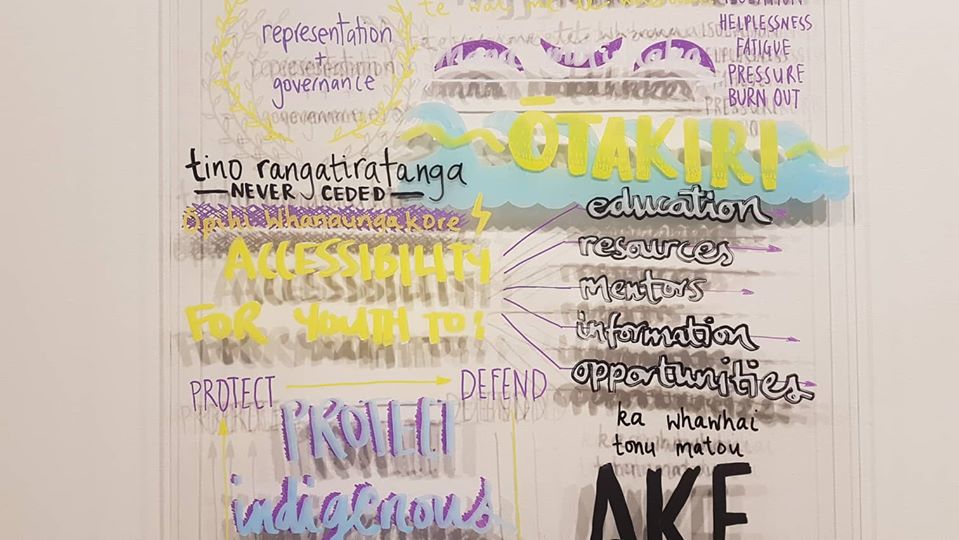 representation
+
governance
HELPLESSNESS
FATIGUE
PRESSURE
BURN OUT
ŌTAKIRI
tino rangatiratanga
NEVER CEDED
Ōpihi Whanaungakore
ACCESSIBILITY
FOR YOUTH TO:
education
resources
mentors
information
opportunities
PROTECT
DEFEND
PROTECT
indigenous
ka whawhai
tonu matou
AKE